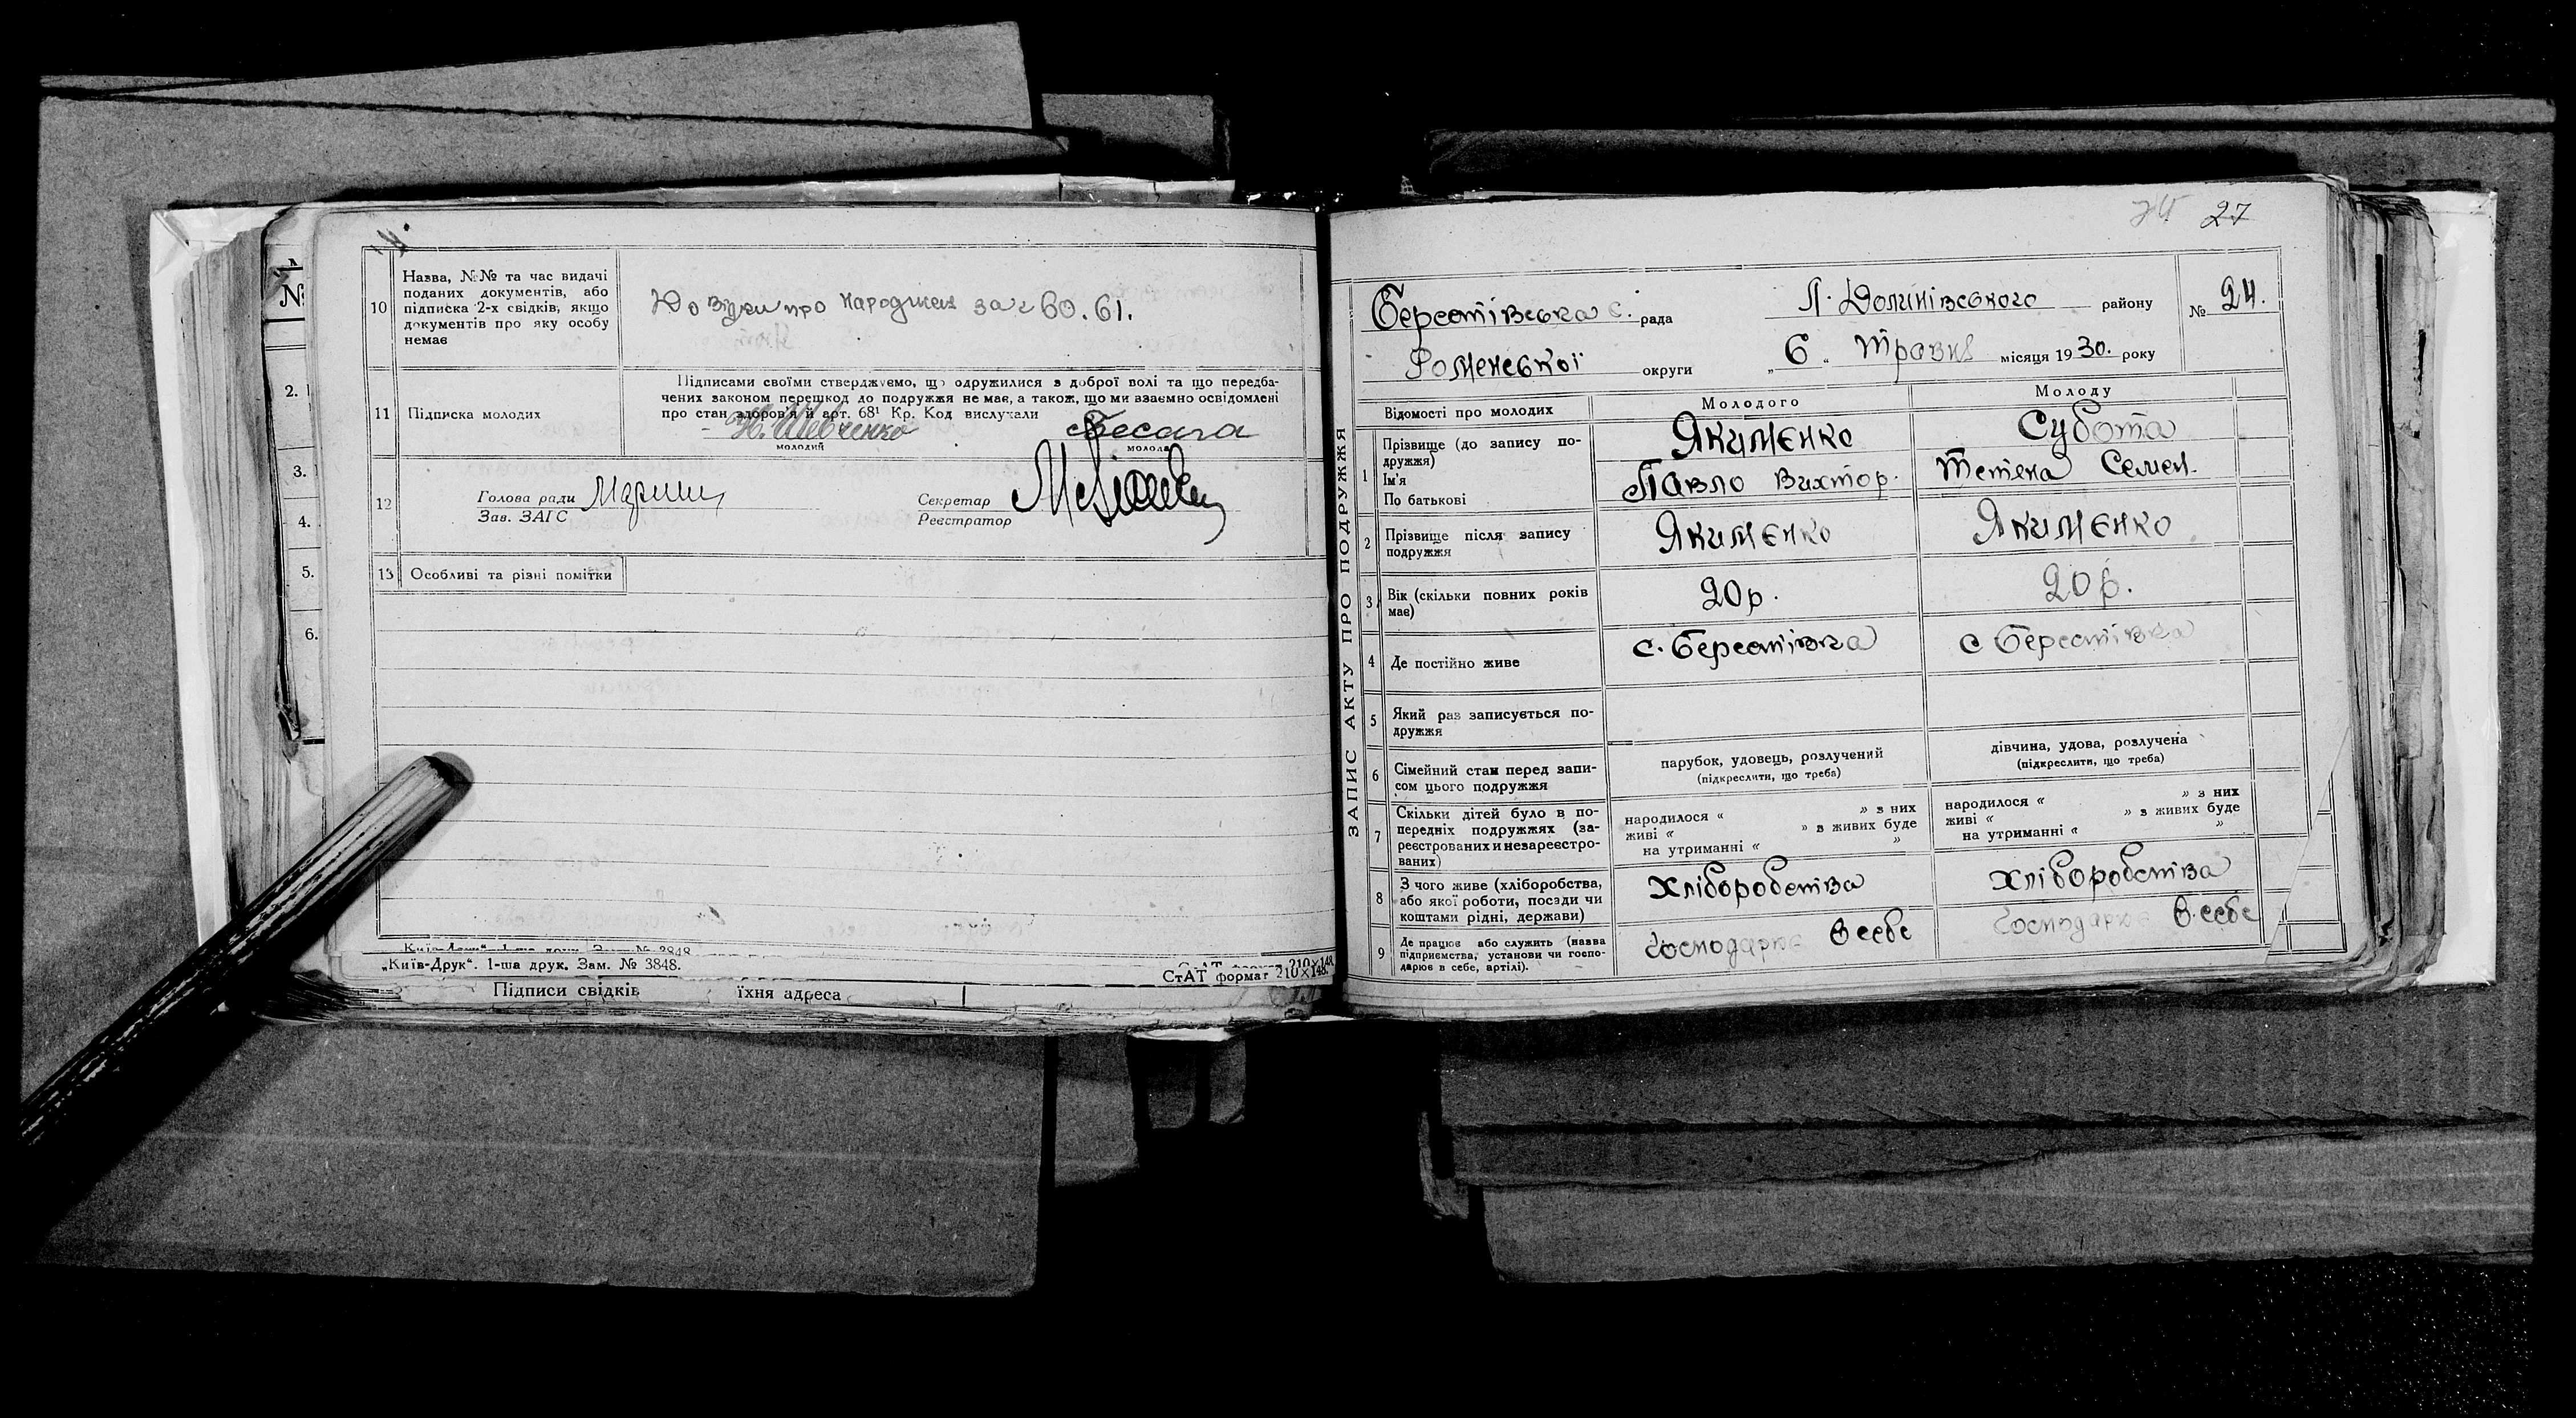 №
2.
3.
4.
5.
6.
10
Назва, №№ та час видачі
поданих документів, або
підписка 2-х свідків, якщо
документів про яку особу
немає
Довідки про народжен за № 60. 61.
11
Підписка молодих
Підписами своїми стверджуємо, що одружилися з доброї волі та що передба-
чених законом перешкод до подружжя не має, а також, що ми взаємно освідомлені
про стан здоров'я й арт. 68¹ Кр. Код вислухали
Шевченко
молодий
молода
12
Голова ради
Зав. ЗАГС
Секретар
Реєстратор
13
Особливі та різні помітки
„Київ-Друк“. 1-ша друк. Зам. № 3848.
СтАТ формат 210×148.
Підписи свідків
їхня адреса
27
ЗАПИС АКТУ ПРО ПОДРУЖЖЯ
Берестівська с. рада
Роменської округи
Л. Долинівського району
„6“ травня місяця 1930. року
№ 24.
Відомості про молодих
Молодого
Молоду
1
Прізвище (до запису по-
дружжя)
Ім'я
По батькові
Якименко
Павло Виктор.
Субота
Тетяна Семен.
2
Прізвище після запису
подружжя
Якименко
Якименко
3
Вік (скільки повних років
має)
20 р.
20 р.
4
Де постійно живе
с. Берестівка
с Берестівка
5
Який раз записується по-
дружжя
6
Сімейний стан перед запи-
сом цього подружжя
парубок, удовець, розлучений
(підкреслити, що треба)
дівчина, удова, розлучена
(підкреслити, що треба)
7
Скільки дітей було в по-
передніх подружжях (за-
реєстрованих и незареєстро-
ваних)
народилося « » з них
живі « » в живих буде
на утриманні « »
народилося « » з них
живі « » в живих буде
на утриманні « »
8
З чого живе (хліборобства,
або якої роботи, посади чи
коштами рідні, держави)
Хліборобства
Хліборобства
9
Де працює або служить (назва
підприємства, установи чи госпо-
дарює в себе, артілі).
Господарює в себе
Господарює в себе